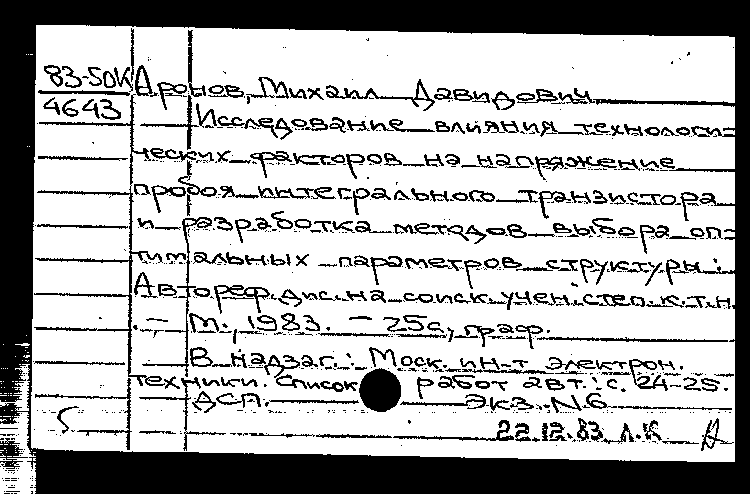 83-50К Аронов, Михаил Давидович
4643 Исследование влияния технологи-
ческих факторов на напряжение
пробоя интегрального транзистора
и разработка методов выбора оп-
тимальных параметров структуры:
Автореф. дис. на соиск. учен. степ. к.т.н.
. — М., 1983. — 25с, граф.
В надзаг.: Моск. ин-т электрон.
техники. Список работ авт.: с. 24-25.
ДСП. Экз. N6
22.12.83 Л.К